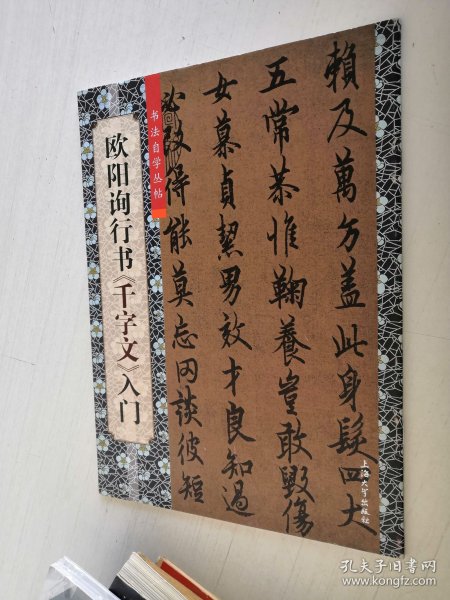 书法自学丛帖
欧阳询行书《千字文》入门
賴及萬方盖此身髮四大
五常恭惟鞠養豈敢毀傷
女慕貞絜男效才良知過
必改得能莫忘罔談彼短
上海大学出版社
孔夫子旧书网
www.kongfz.com